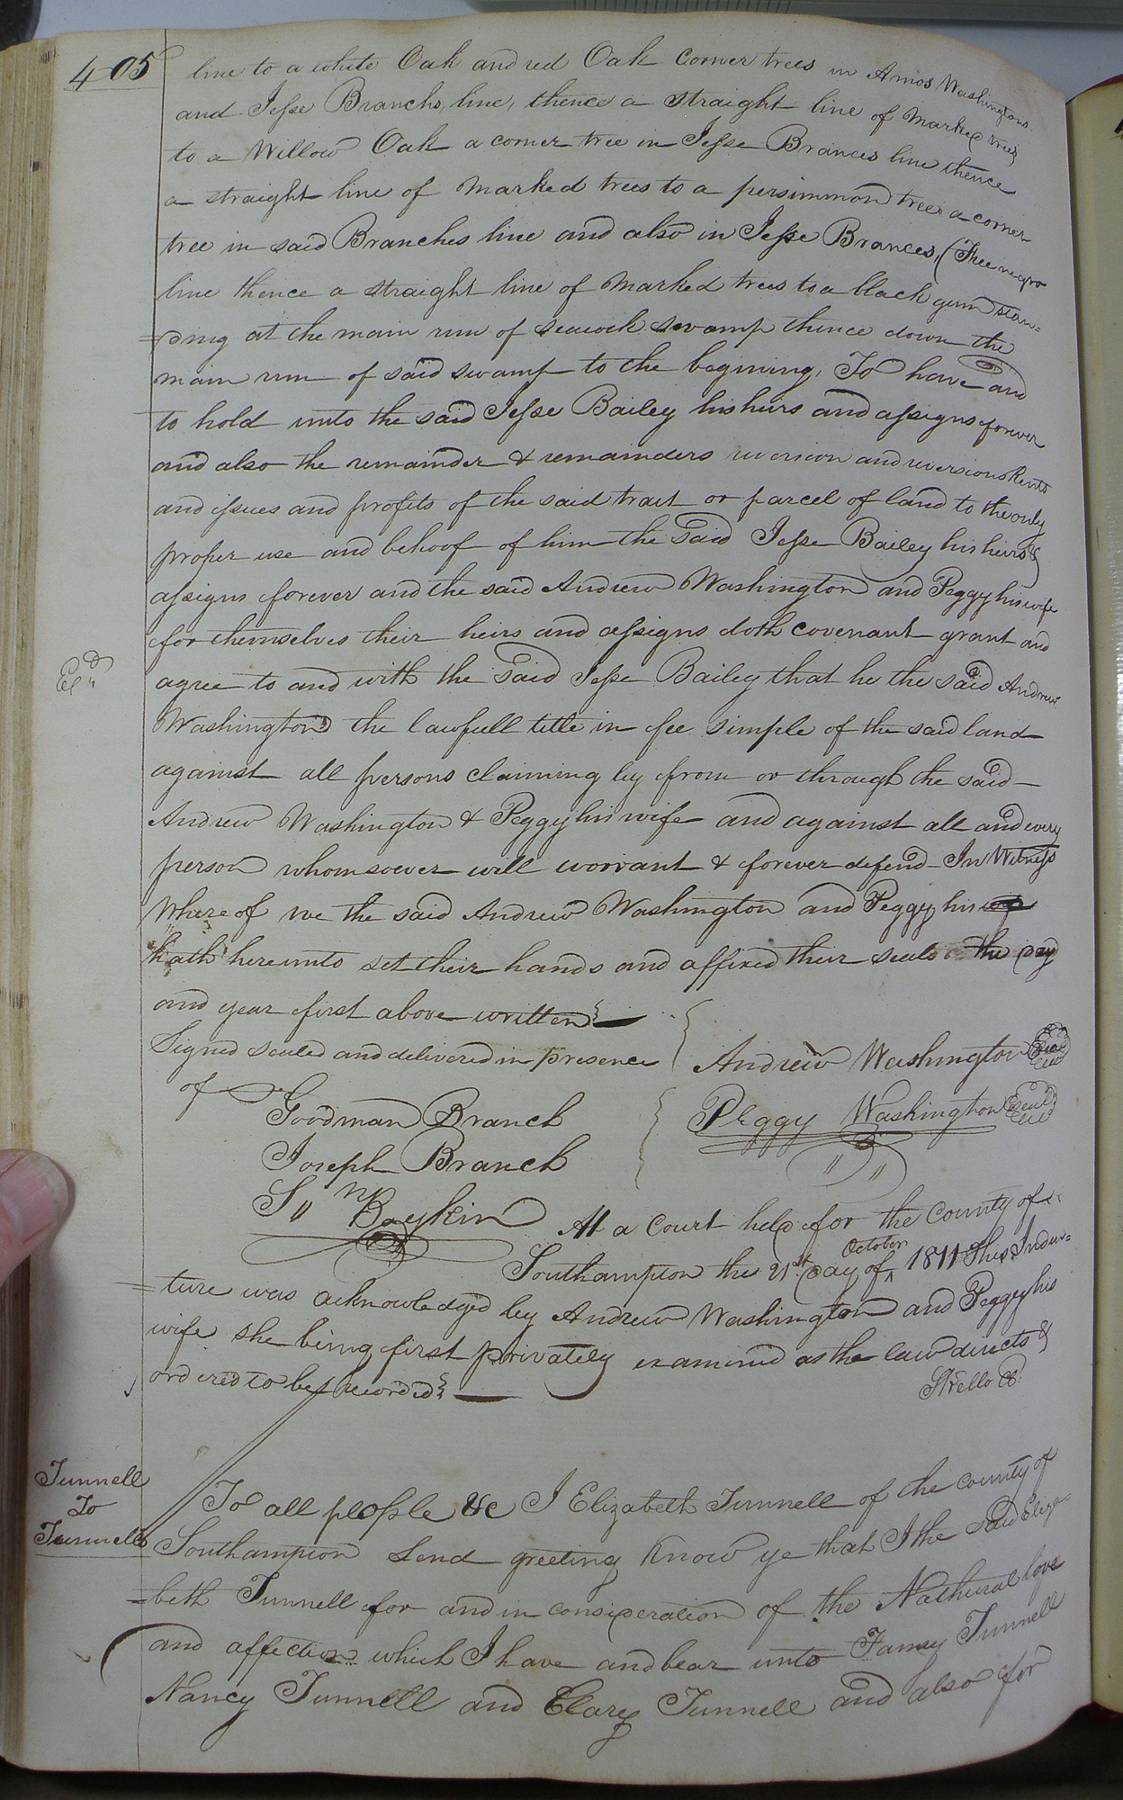 405
line to a white Oak and red Oak corner trees in Amos Washingtons
and Jesse Branchs line, thence a straight line of marked trees
to a Willow Oak a corner tree in Jesse Brances line thence
a straight line of marked trees to a persimmon tree a corner
tree in said Branches line and also in Jesse Brances, (Free negro
line thence a straight line of marked trees to a black gum stan=
=ding at the main run of seacock swamp thence down the
main run of said swamp to the begining, To have and
to hold unto the said Jesse Bailey his heirs and assigns forever
and also the remainder & remainders reversion and reversions Rents
and issues and profits of the said tract or parcel of land to the only
proper use and behoof of him the said Jesse Bailey his heirs &
assigns forever and the said Andrew Washington and Peggy his wife
for themselves their heirs and assigns doth covenant grant and
agree to and with the said Jesse Bailey that he the said Andrew
Washington the lawfull title in fee simple of the said land
against all persons claiming by from or through the said
Andrew Washington & Peggy his wife and against all and every
person whomsoever will worrant & forever defend In Witness
Whareof we the said Andrew Washington and Peggy his wife
hath hereunto set their hands and affixed their seals the day
and year first above written
Signed sealed and delivered in presence
of
Andrew Washington Seal
Peggy Washington Seal
Goodman Branch
Joseph Branch
S,, Boykin
At a Court held for the County of
Southampton the 21st day of October 1811 This Inden=
=ture was acknowledged by Andrew Washington and Peggy his
wife she being first privately examined as the law directs &
ordered to be recorded
Ex,,d
Tunnell
To
Tunnells
To all people &c I Elizabeth Tunnell of the county of
Southampton Send greeting Know ye that I the said Eliza=
=beth Tunnell for and in consideration of the Nathural love
and affection which I have and bear unto Tunnell
Nancy Tunnell and Clary Tunnell and also for